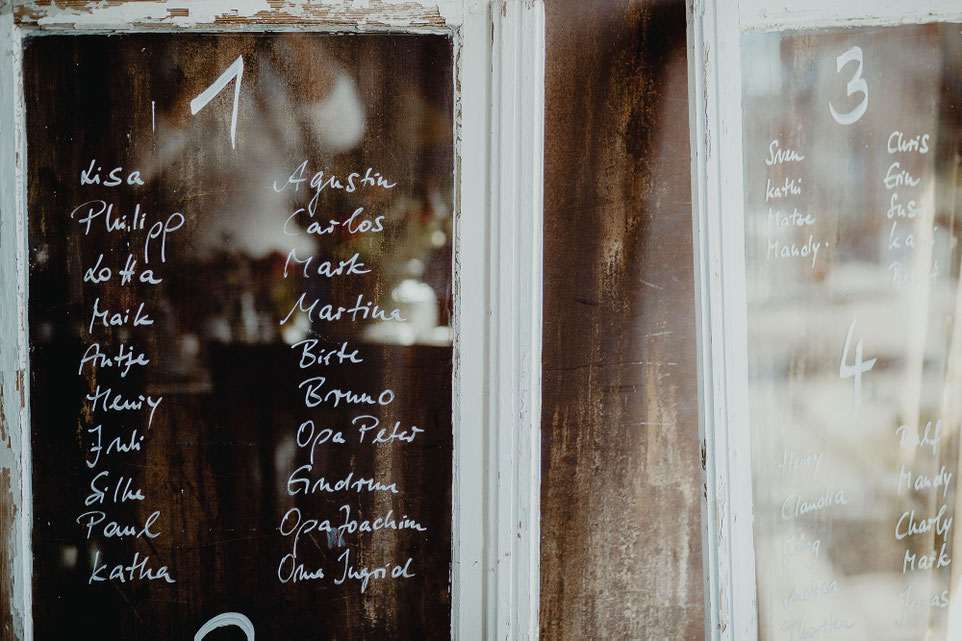 1
Lisa
Philipp
Lotta
Maik
Antje
Henry
Juli
Silke
Paul
Katha
Agustin
Carlos
Mark
Martina
Birte
Bruno
Opa Peter
Gudrun
Opa Joachim
Oma Ingrid
3
Sven
Kathi
Matze
Mandy
Chris
Susi
4
Henry
Claudia
Jörg
Andrea
Thorsten
Mandy
Charly
Maik
Jonas